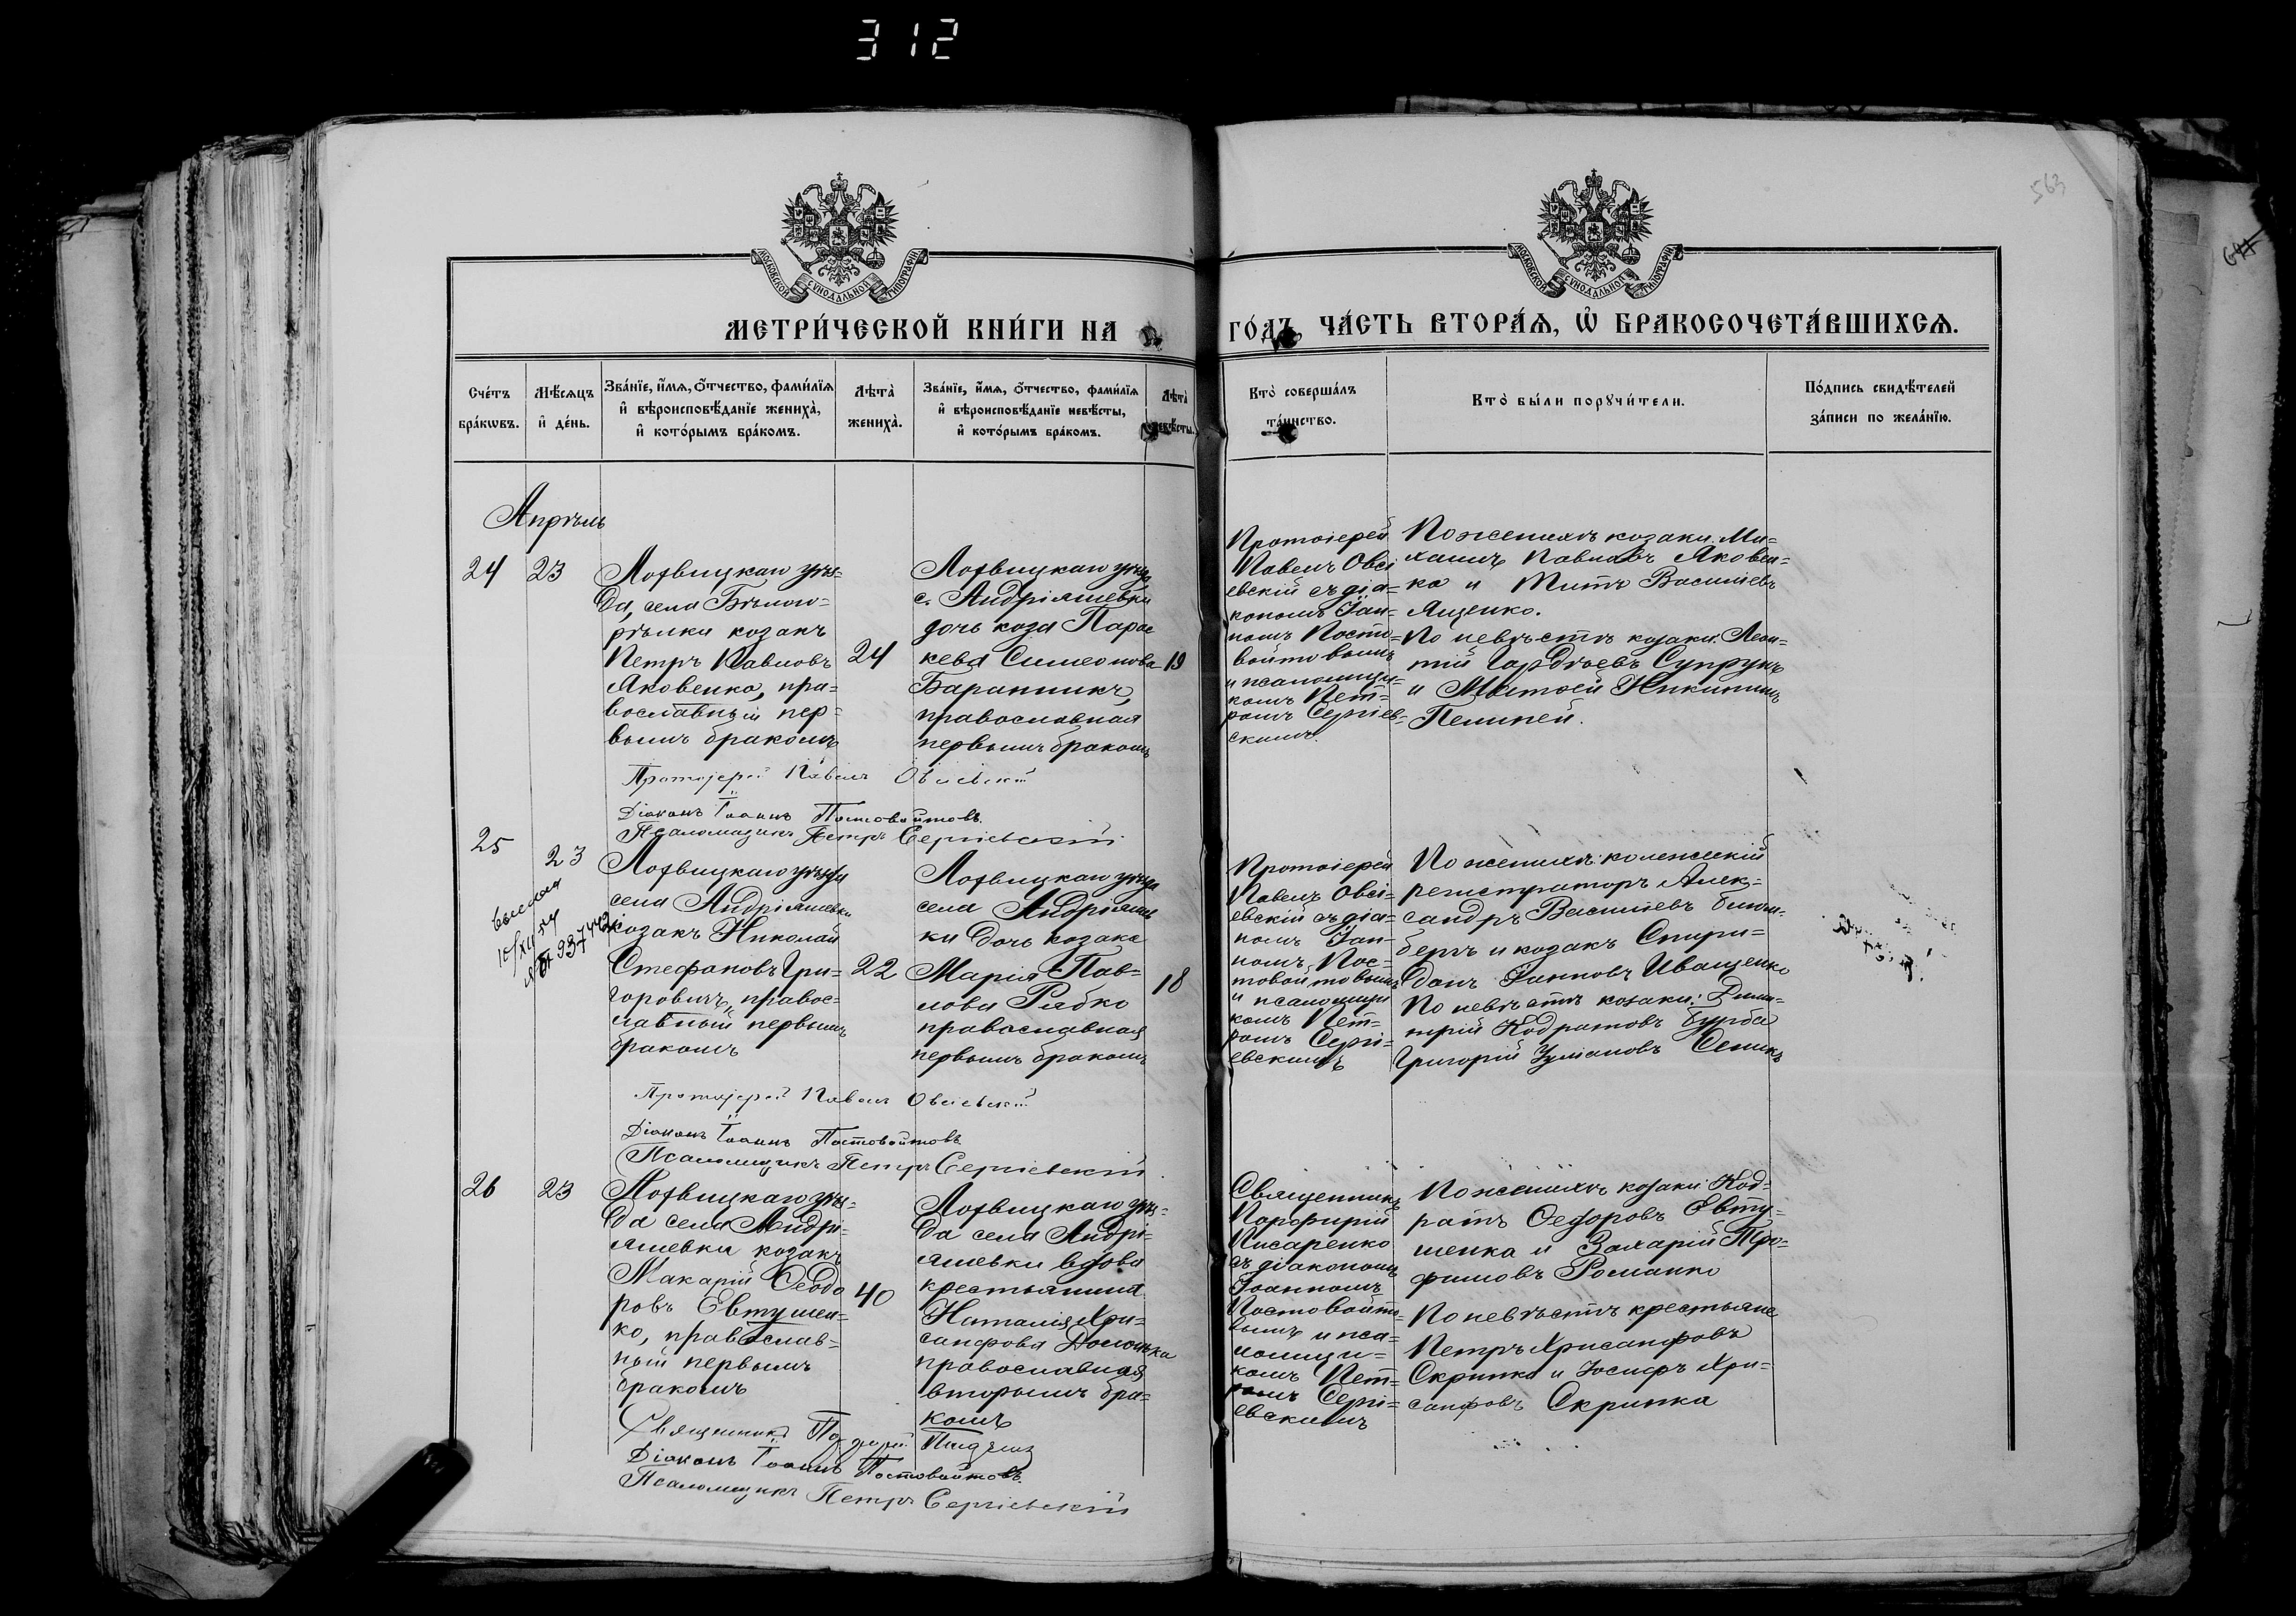 312
563
МОСКОВСКОЙ СѴНОДАЛЬНОЙ ТИПОГРАФІИ
МОСКОВСКОЙ СѴНОДАЛЬНОЙ ТИПОГРАФІИ
МЕТРИ́ЧЕСКОЙ КНИ́ГИ НА ГО́ДЪ, ЧА́СТЬ ВТОРА́Я, Ѡ҆ БРАКОСОЧЕТА́ВШИХСЯ.
Сче́тъ
бра́кѡвъ.
Мѣ́сяцъ
и҆ де́нь.
Зва́нїе, и҆́мя, ѻ҆́тчество, фами́лїя
и҆ вѣроисповѣ́данїе жениха̀,
и҆ кото́рымъ бра́комъ.
Лѣта̀
жениха̀.
Зва́нїе, и҆́мя, ѻ҆́тчество, фами́лїя
и҆ вѣроисповѣ́данїе невѣ́сты,
и҆ кото́рымъ бра́комъ.
Лѣта̀
невѣ́сты.
Кто̀ соверша́лъ
та́инство.
Кто̀ бы́ли порꙋчи́тели.
По́дпись свидѣ́телей
за́писи по жела́нїю.
Апрѣль
24
23
Лохвицкаго уѣз-
да, села Бѣлого-
рѣлки козакъ
Петръ Павловъ
Яковенко, пра-
вославный пер-
вымъ бракомъ
24
Лохвицкаго уѣзда
с. Андріяшевки
дочь коза Парас
кева Симеонова
Баранникъ,
православная
первымъ бракомъ
19
Протоіерей
Павелъ Овсі
евскій съ діа-
кономъ Іоан-
номъ Посто-
войтовымъ
и псаломщи-
комъ Пет-
ромъ Сергіев-
скимъ.
По женихѣ козаки: Ми-
хаилъ Павловъ Яковен-
ко и Титъ Васильевъ
Ященко.
По невѣстѣ козаки: Леон-
тій Гордѣевъ Супрунъ
и Матвей Никитинъ
Пелипей.
Протоіерей Павелъ Овсіевскій
Діаконъ Іоаннъ Постовойтовъ.
Псаломщикъ Петръ Сергіевскій
25
23
Лохвицкаго уѣзда
села Андріяшевки
козакъ Николай
Стефановъ Гри-
горовичъ, правос-
лавный первымъ
бракомъ
22
Лохвицкаго уѣзда
села Андріяшев
ки дочь козака
Марія Пав-
лова Рябко
православная
первымъ бракомъ
18
Протоіерей
Павелъ Овсі-
евскій съ діа-
номъ Іоан-
номъ Пос-
товойтовымъ
и псаломщи
комъ Пет-
ромъ Сергі-
евскимъ
По женихѣ: колежскій
регистраторъ Алек-
сандръ Васильевъ
бергъ и козакъ Спири-
донъ Іоанновъ Иващенко
По невѣстѣ козаки: Дими-
трій Кодратовъ Бурба
Григорій Семикъ
Протоіерей Павелъ Овсіевскій
Діаконъ Іоаннъ Постовойтовъ.
Псаломщикъ Петръ Сергіевскій
26
23
Лохвицкаго уѣз-
да села Андрі-
яшевки козакъ
Макарій Ѳеодо
ровъ Евтушен-
ко, православ-
ный первымъ
бракомъ
40
Лохвицкаго уѣз-
да села Андрі-
яшевки вдова
крестьянина
Наталія Хри-
санфова
православная
вторымъ бра-
комъ
Священникъ
Порфирій
Писаренко
съ діакономъ
Іоанномъ
Постовойто-
вымъ и пса-
ломщи-
комъ Пет-
ромъ Сергі-
евскимъ
По женихѣ козаки: Код-
ратъ Ѳедоровъ Евту-
шенко и Захарій Тро-
фимовъ Романко
По невѣстѣ крестьяне
Петръ Хрисанфовъ
Скрипка и Іосифъ Хри-
санфовъ Скрипка
Священникъ
Діаконъ Іоаннъ Постовойтовъ.
Псаломщикъ Петръ Сергіевскій